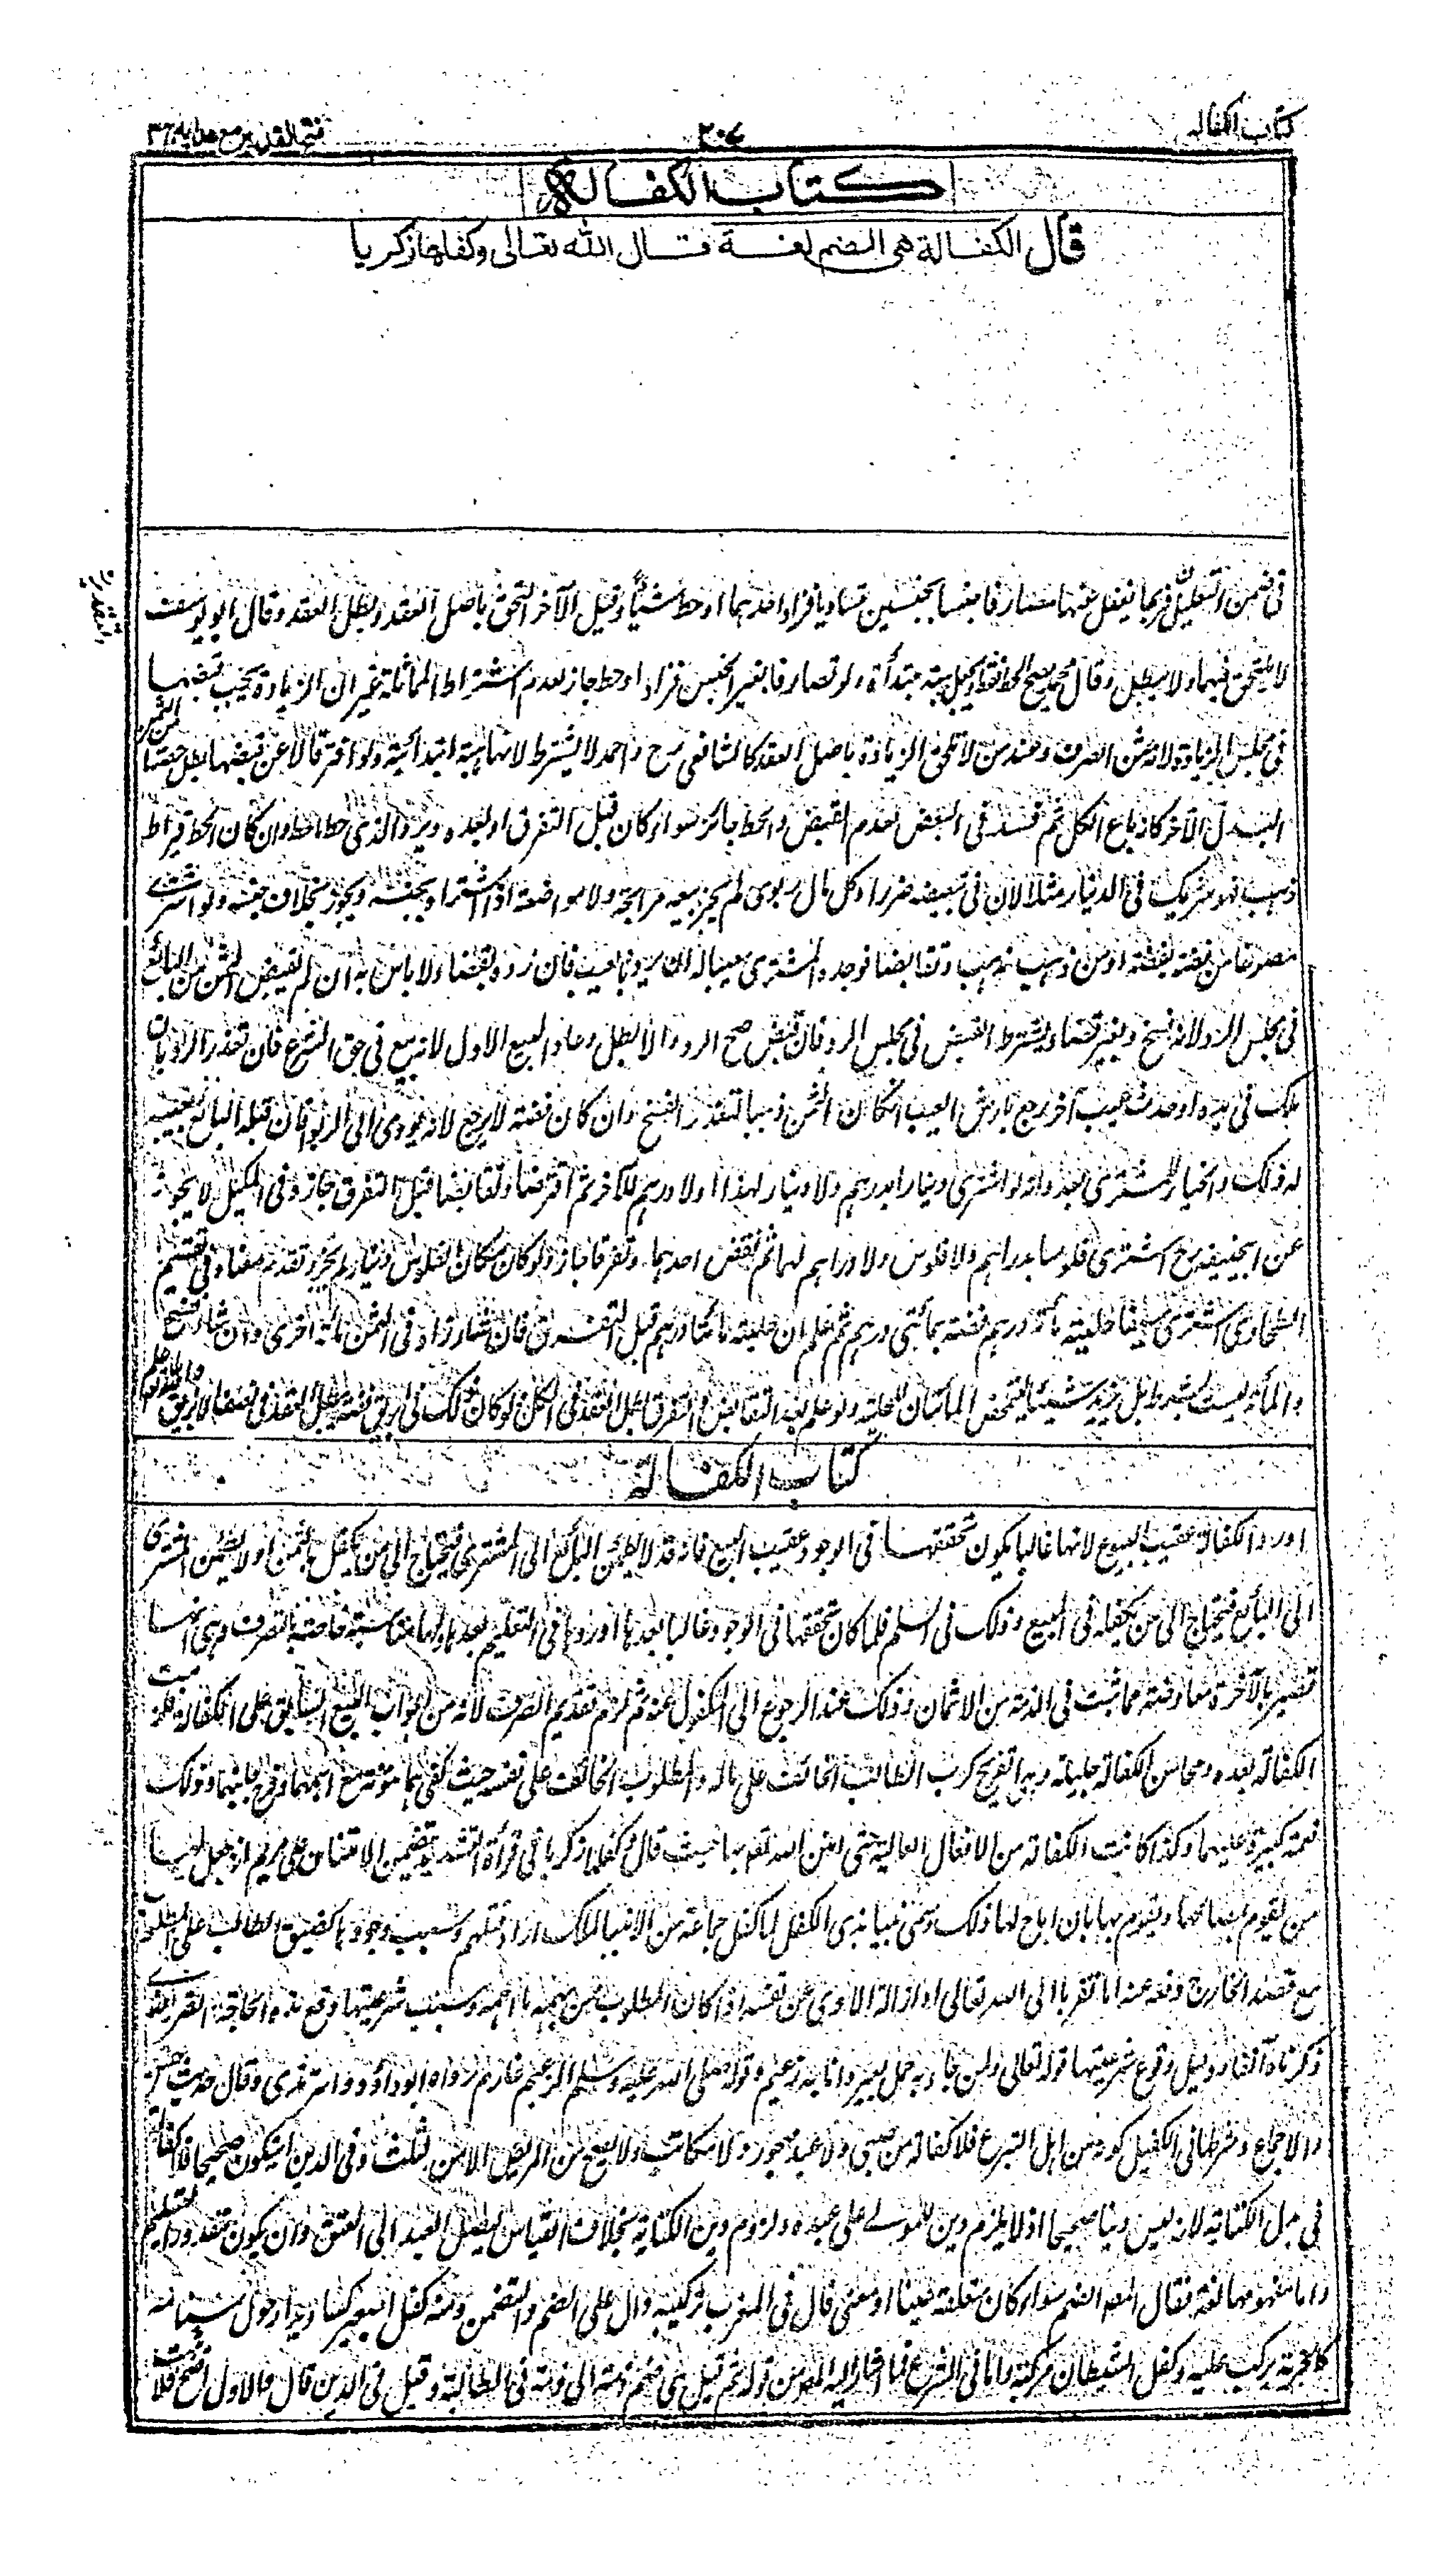 كتاب الكفالہ
٢٠٤
فتح القدير مع هدايه ج٣
كتاب الكفالة
قال الكفالة هى الضم لغة قال الله تعالى وكفلها زكريا
فى ضمن التعليل فربما يغفل عنها تصارفا جنسا بجنسين متساويا فزاد احدهما او حط شيئا وقبل الآخر التحق باصل العقد وبطل العقد وقال ابو يوسف
لا يلتحق فيهما ولا يبطل وقال محمد يصح الحط فقط ويجعل هبة مبتدأة ولو تصارفا بغير الجنس فزادا او حط جاز لعدم اشتراط المماثلة غير ان الزيادة يجب قبضها
فى مجلس الزيادة لانه ثمن الصرف وعند من لا تلحق الزيادة باصل العقد كالشافعى رح واحمد لا يشترط لانها هبة ابتدائية ولو افترقا لا عن قبضها بطل حصتها من الثمن
البدل الآخر كانه باع الكل ثم فسد فى البعض لعدم القبض والحط جائز سواء كان قبل التفرق او بعده ويرد الذى حط ما حط وان كان الحط قيراط
ذهب فهو شريك فى الدينار مثلا لان فى تبعيضه ضررا وكل مال ربوى لم يجز بيعه مرابحة ولا مواضعة اذا اشتراه بجنسه ويجوز بخلاف جنسه ولو اشترى
مصوغا من فضة بفضة او من ذهب بذهب وتقابضا فوجده المشترى معيبا له ان يرده بالعيب فان رده بقضاء لا باس به ان لم يقبض الثمن من البائع
فى مجلس الرد لانه فسخ وبغير قضاء يشترط القبض فى مجلس الرد فان قبض صح الرد والا بطل وعاد البيع الاول لانه بيع فى حق الشرع فان تعذر الرد بان
هلك فى يده او حدث عيب آخر رجع بارش العيب ان كان الثمن ذهبا لتعذر الفسخ وان كان فضة لا يرجع لانه يؤدى الى الربوا فان قبله البائع بعيبه
له ذلك والخيار للمشترى بعد ولو اشترى دينارا بدرهم ولا دينار لهذا ولا درهم للآخر ثم اقترضا وتقابضا قبل التفرق جاز وفى المكيل لا يجوز
عن ابيحنيفه رح اشترى فلوسا بدراهم ولا فلوس ولا دراهم لهما ثم نقض احدهما وتفرقا جاز ولو كان مكان الفلوس دينار لم يجز وقد مر معناه وفى تقسيم
الطحاوى اشترى سيفا حليته مائة درهم فضة بمأتى درهم ثم علم ان حليته مائتا درهم قبل التفرق فان شاء زاد فى الثمن مائة اخرى وان شاء فسخ
كتاب الكفالة
اورد الكفالة عقيب البيوع لانها غالبا يكون تحققها فى الوجود عقيب البيع فانه قد لا يطمئن البائع الى المشترى فيحتاج الى من يتكفل بالثمن او لا يطمئن المشترى
الى البائع فيحتاج الى من يكفله فى المبيع وذلك فى السلم فلما كان تحققها فى الوجود غالبا بعدها اوردها فى التعليم بعدها ولها مناسبة خاصة بالصرف وهى انها
تصير بالآخرة معاوضة عما ثبت فى الذمة من الاثمان وذلك عند الرجوع الى المكفول عنه ثم لزم تقديم الصرف لانه من ابواب البيع السابق على الكفالة فلزمت
الكفالة بعده ومحاسن الكفالة جليلة وهى تفريج كرب الطالب الخائف على ماله والمطلوب الخائف على نفسه حيث كفى بها مؤنة ما اهمهما وفرج جانبهما وذلك
نعمة كبيرة عليهما وكذا كانت الكفالة من الافعال العالية حتى امتن الله تعه بها حيث قال وكفلها زكريا فى قرأة التشديد يتضمن الامتنان على مريم اذ جعل لها
من يقوم بمصالحها ويقوم بها بان اباح لها ذلك وسمى نبيا بذى الكفل لما كفل جماعة من الانبياء لملك اراد قتلهم وسبب وجودها تضييق الطالب على المطلوب
مع قصد الخارج رفعه عنه اما تقربا الى الله تعالى او ازالة الاذى عن نفسه اذا كان المطلوب ممن يهمه ما اهمه وسبب شرعيتها دفع هذه الحاجة والضرر الذى
ذكرناه آنفا ودليل وقوع شرعيتها قوله تعالى ولمن جاء به حمل بعير وانا به زعيم وقوله صلى الله عليه وسلم الزعيم غارم رواه ابو داؤد والترمذى وقال حديث حسن
والاجماع وشرطها فى الكفيل كونه من اهل التبرع فلا كفالة من صبى ولا عبد محجور ولا مكاتب ولا يصح من المريض الا من الثلث وفى الدين ان يكون صحيحا فلا كفالة
فى بدل الكتابة لانه ليس دينا صحيحا اذ لا يلزم دين للمولى على عبده ولزوم دين الكتابة بخلاف القياس ليصل العبد الى العتق وان يكون مقدور التسليم
واما مفهومها لغة فقال المصه الضم سواء كان متعلقه عينا او معنى قال فى المغرب تركيبه دال على الضم والتضمن ومنه كفل البعير كساء يدار حول سنامه
كالحوية يركب عليه وكفل الشيطان مركبه واما فى الشرع فما اشار اليه المصه من قوله ثم قيل هى ضم ذمة الى ذمة فى المطالبة وقيل فى الدين قال والاول اصح فلا